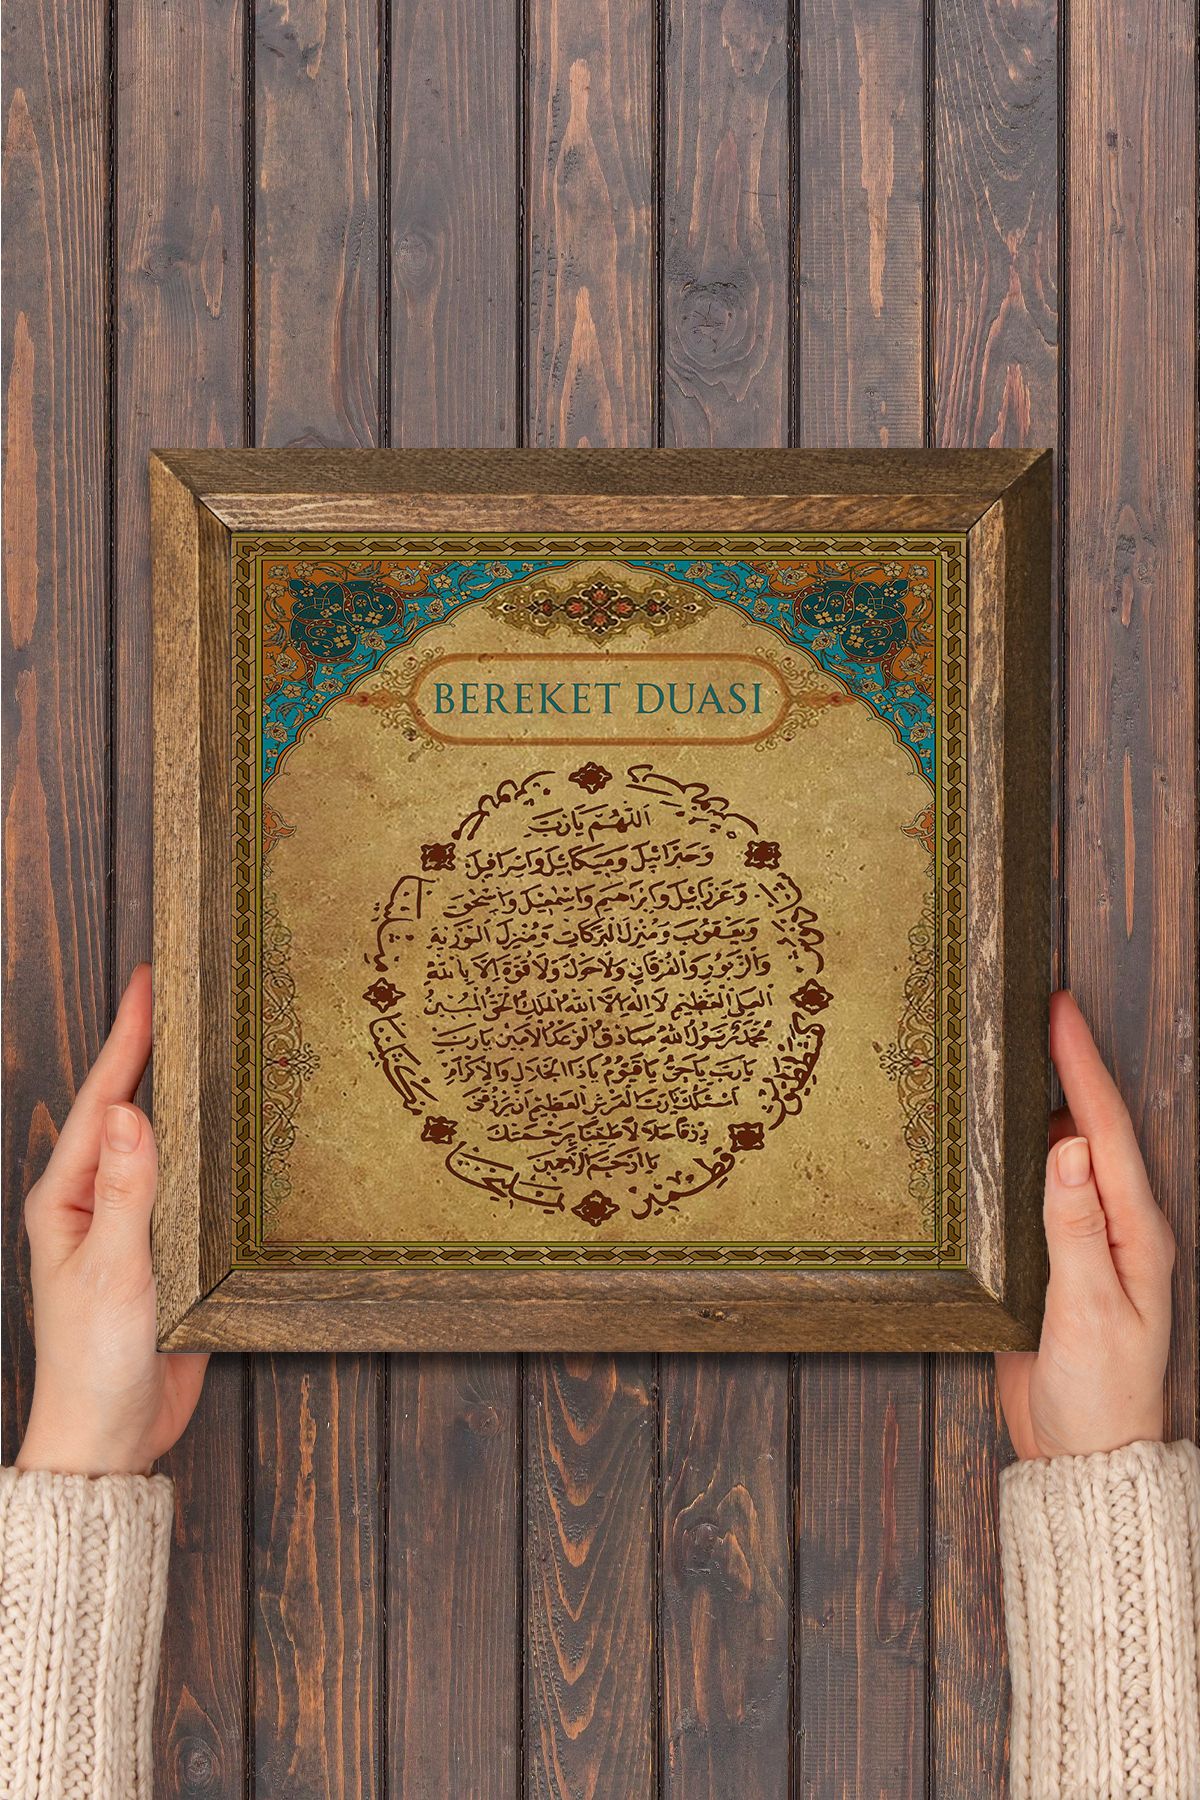 BEREKET DUASI
اَللّٰهُمَّ يَارَبَّ
وَجَبْرَائِيلَ وَمِيكَائِيلَ وَاِسْرَافِيلَ
وَعَزْرَائِيلَ وَاِبْرَاهِيمَ وَاِسْمٰعِيلَ وَاِسْحٰقَ
وَيَعْقُوبَ وَمُنْزِلَ الْبَرَكَاتِ وَمُنْزِلَ التَّوْرٰيةِ
وَالزَّبُورِ وَالْفُرْقَانِ وَلَاحَوْلَ وَلَاقُوَّةَ اِلَّا بِاللّٰهِ
الْعَلِىِّ الْعَظِيمِ لَا اِلٰهَ اِلَّا اللّٰهُ الْمَلِكُ الْحَقُّ الْمُبِينُ
مُحَمَّدٌ رَسُولُ اللّٰهِ صَادِقُ الْوَعْدِ الْاَمِينِ يَارَبِّ
يَارَبِّ يَاحَىُّ يَاقَيُّومُ يَاذَا الْجَلَالِ وَالْاِكْرَامِ
اَسْئَلُكَ يَارَبَّ الْعَرْشِ الْعَظِيمِ اَنْ تَرْزُقَنِى
رِزْقًا حَلَالًا طَيِّبًا بِرَحْمَتِكَ
يَا اَرْحَمَ الرَّاحِمِينَ
يمليخا
مكثلينا
مثلينا
مرنوش
دبرنوش
شاذنوش
كفشططيوش
قطمير